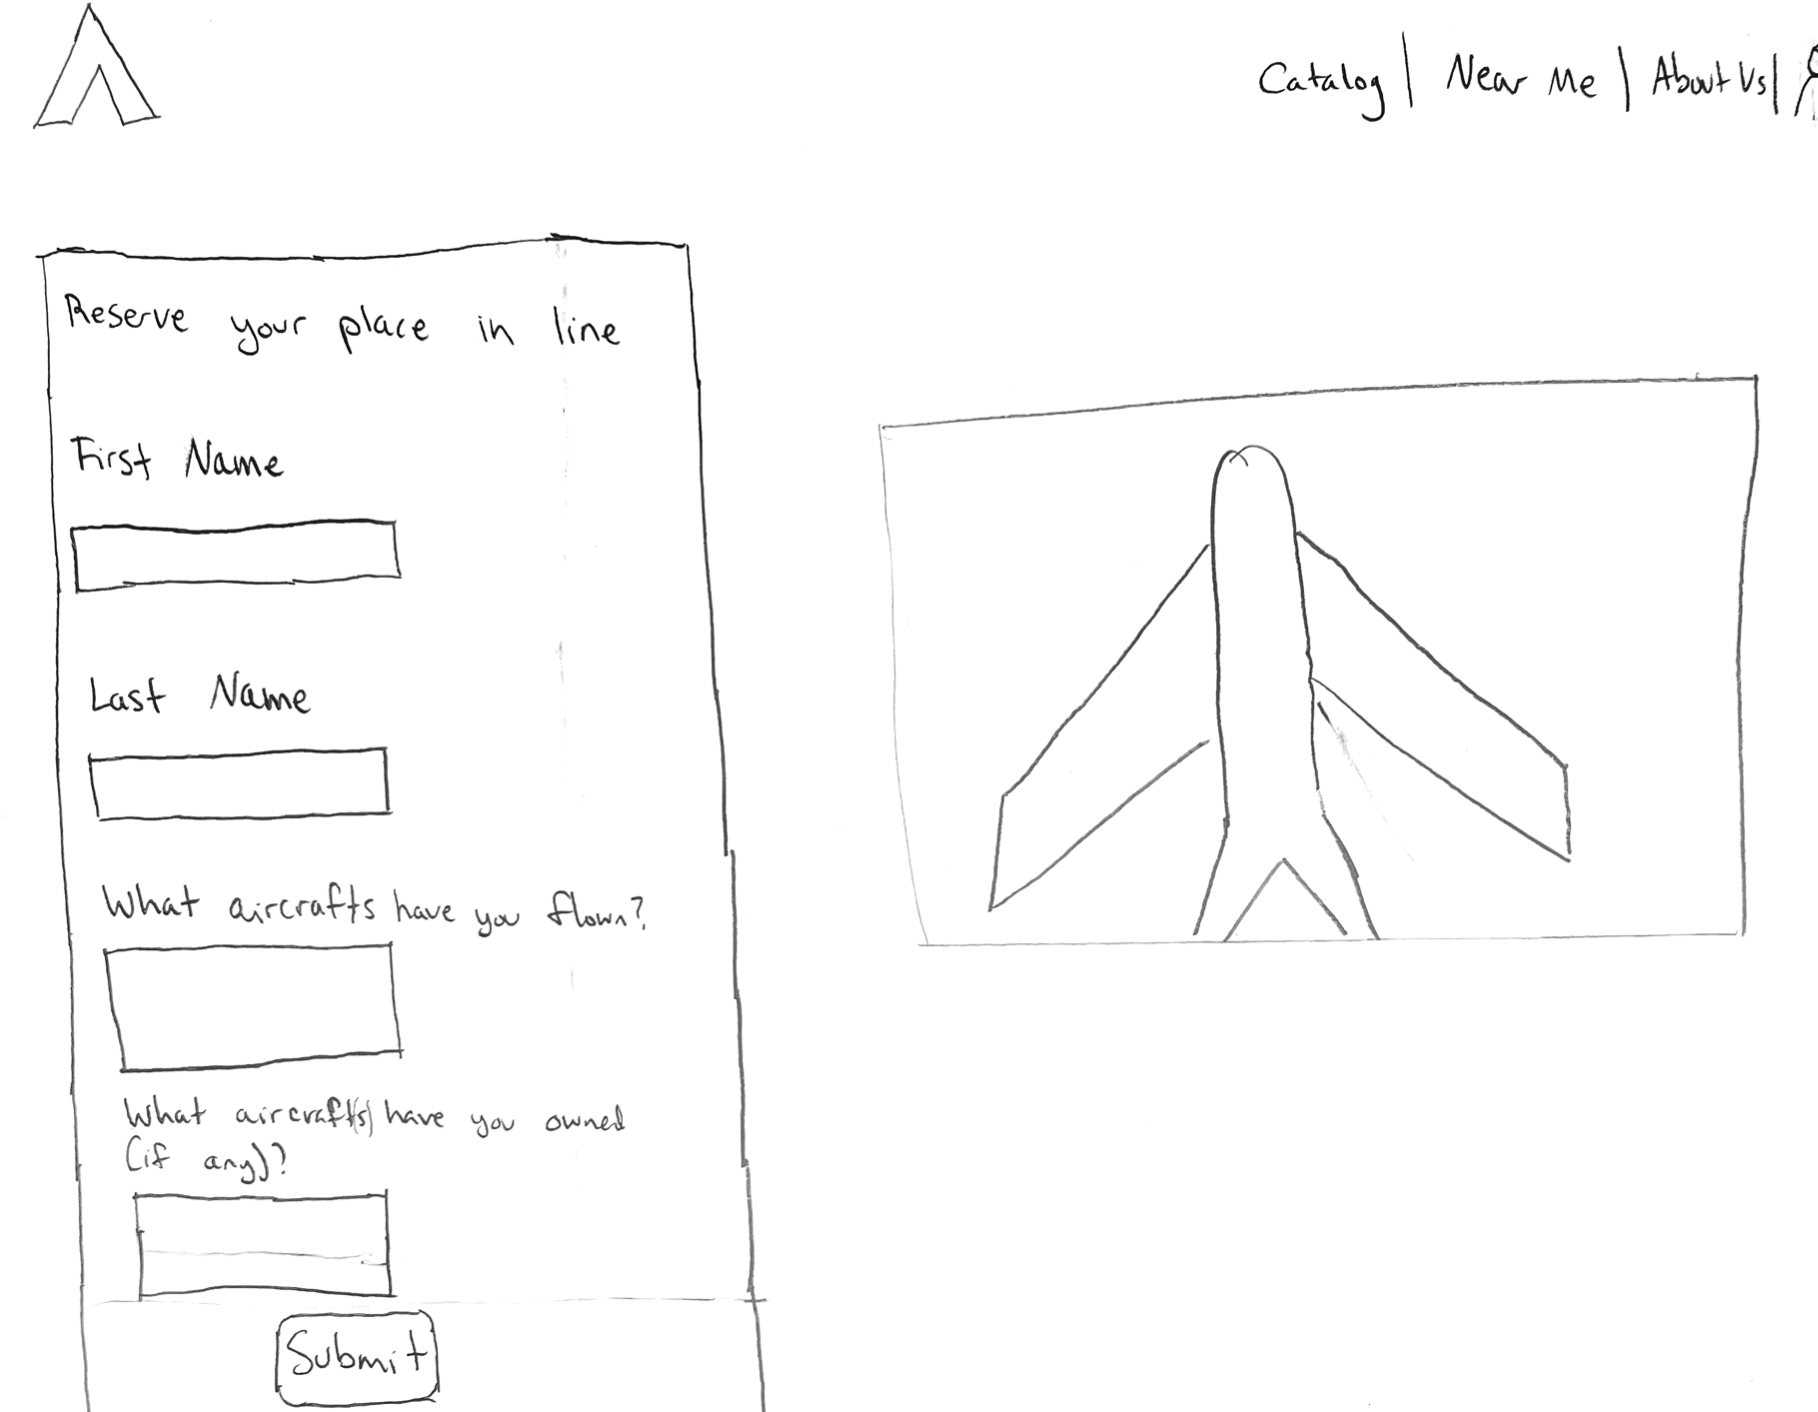 Catalog | Near Me | About Us |
Reserve your place in line
First Name
Last Name
What aircrafts have you flown?
What aircraft(s) have you owned
(if any)?
Submit